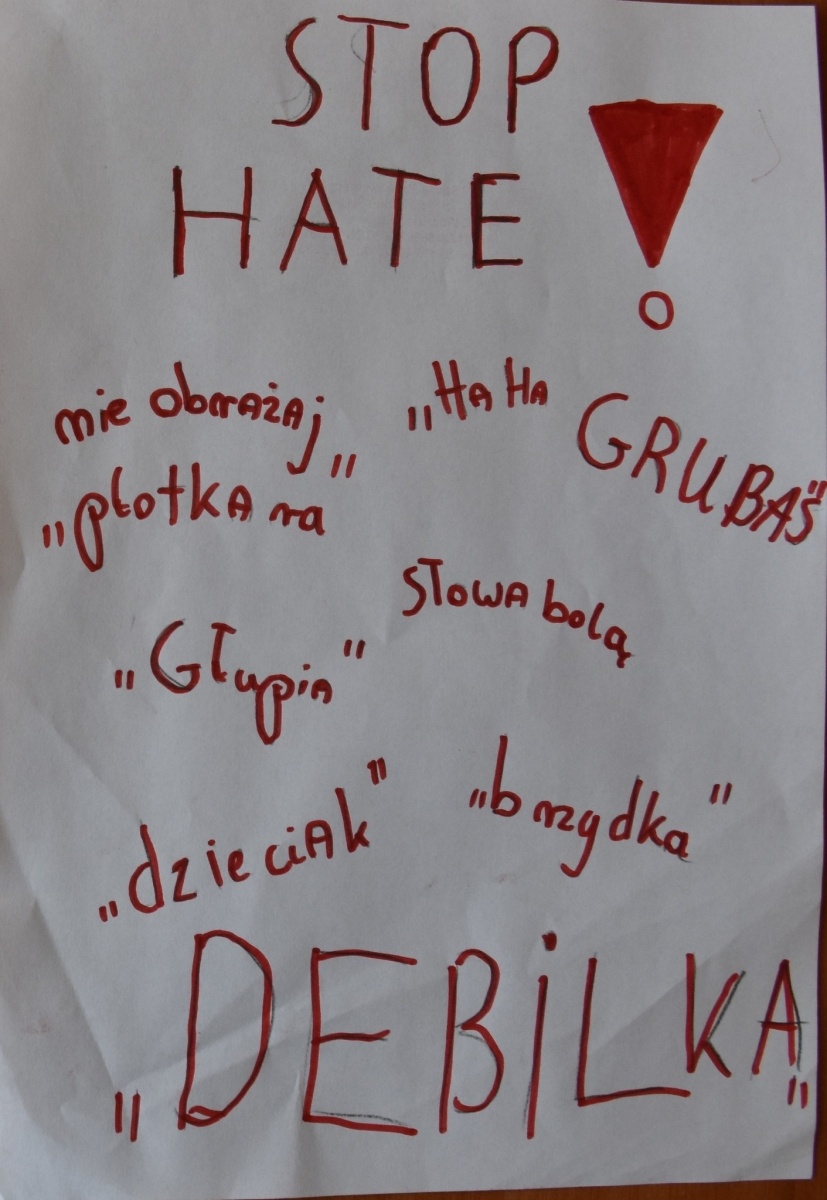 STOP
HATE !
nie obrażaj
„HA HA GRUBAŚ"
„płotkara"
słowa bolą
„Głupia"
„brzydka"
„dzieciak"
„DEBiLKA„